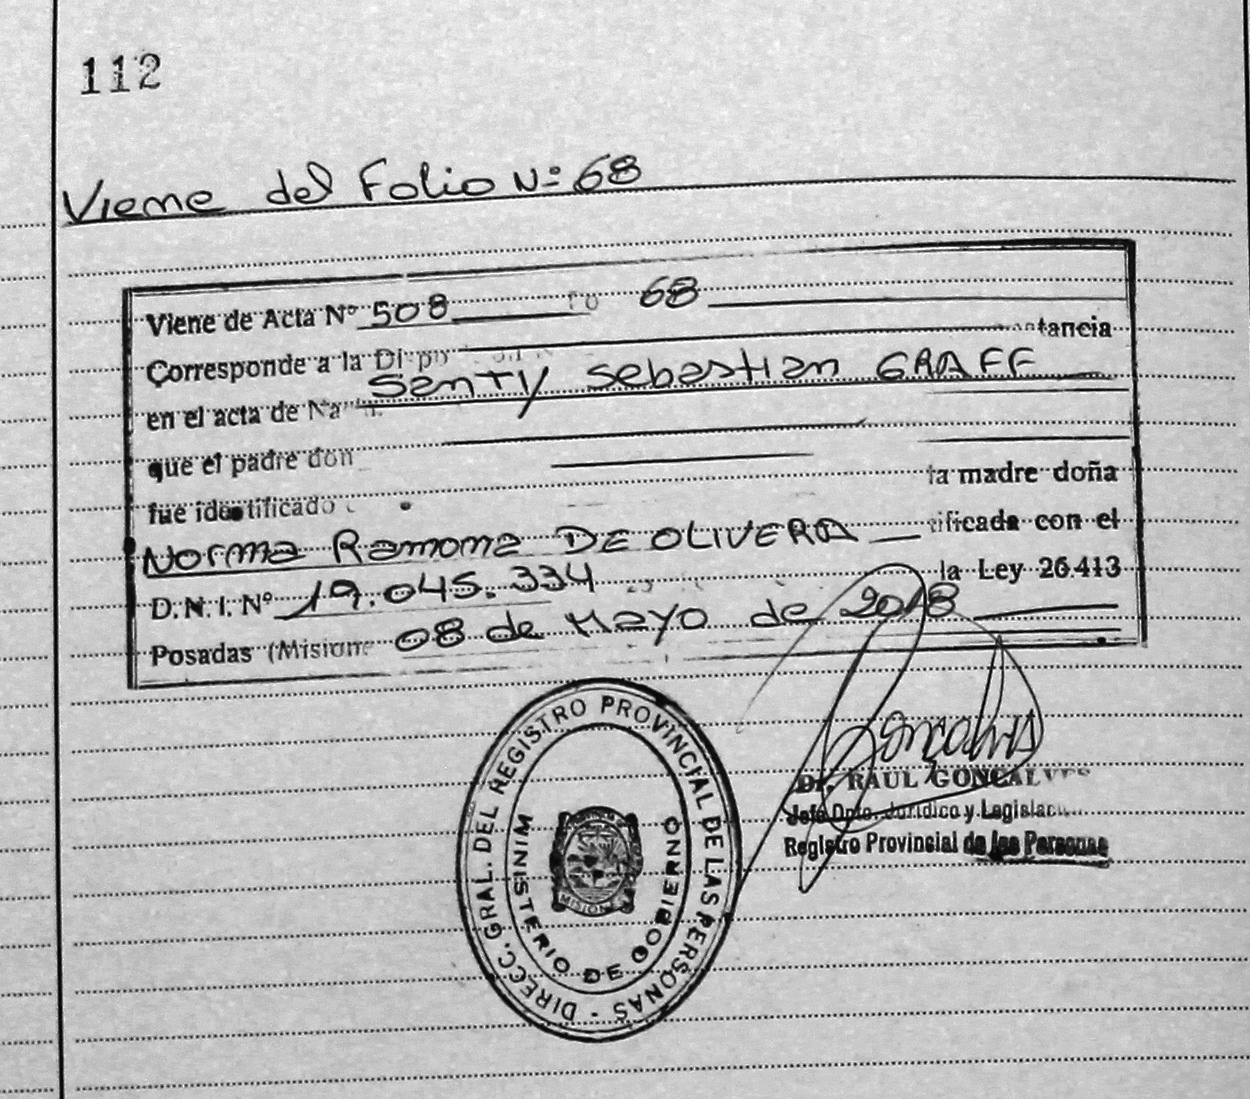 112
Viene del Folio Nº 68
Viene de Acta Nº 508 68
Corresponde a la tancia
Santy Sebastian GRAFF
en el acta de
que el padre don
la madre doña
fue identificado
Norma Ramona DE OLIVERA ificada con el
D.N.I. Nº 19.045.334 la Ley 26413
Posadas (Misione 08 de Mayo de 2018
Goncalves
Dr. RAUL GONCALVES
Jefe Dpto. Juridico y Legislac
Registro Provincial de las Personas
DIRECC. GRAL. DEL REGISTRO PROVINCIAL DE LAS PERSONAS -
MINISTERIO DE GOBIERNO
MISIONES